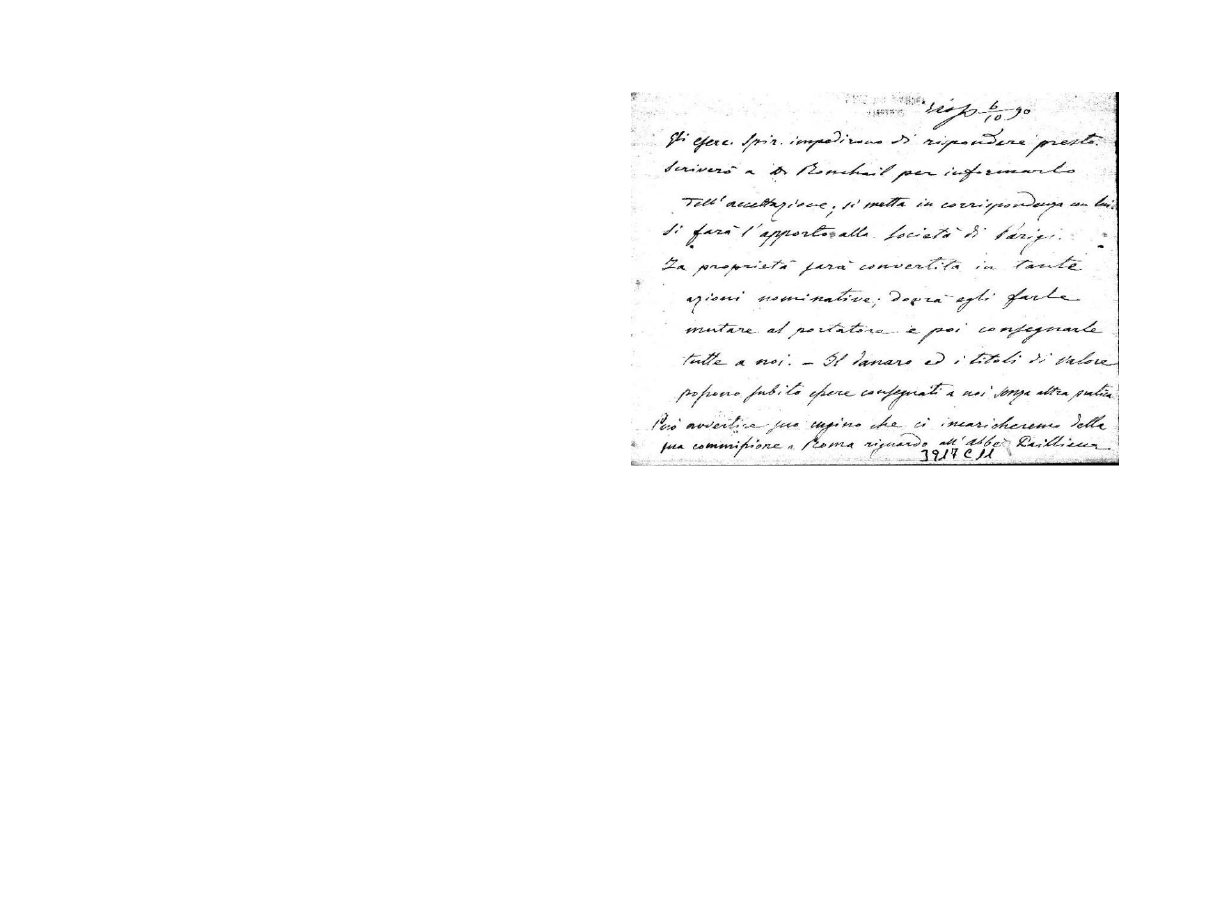 risp 6/10 90
Gli eserc. Spir. impedirono di rispondere presto.
Scriverò a D. Ronchail per informarlo
dell'accettazione; si metta in corrispondenza con lui.
Si farà l'apporto alla Società di Parigi.
La proprietà sarà convertita in tante
azioni nominative; dovrà egli farle
mutare al portatore e poi consegnarle
tutte a noi. — Il danaro ed i titoli di valore
possono subito essere consegnati a noi senza altra pratica.
Può avvertire suo cugino che ci incaricheremo della
sua commissione a Roma riguardo all'abbé
3917 C 11